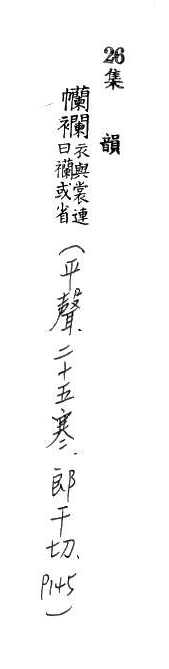 26
集韻
㡩襴衣與裳連曰襴或省(平聲.二十五寒.郎干切.P145)